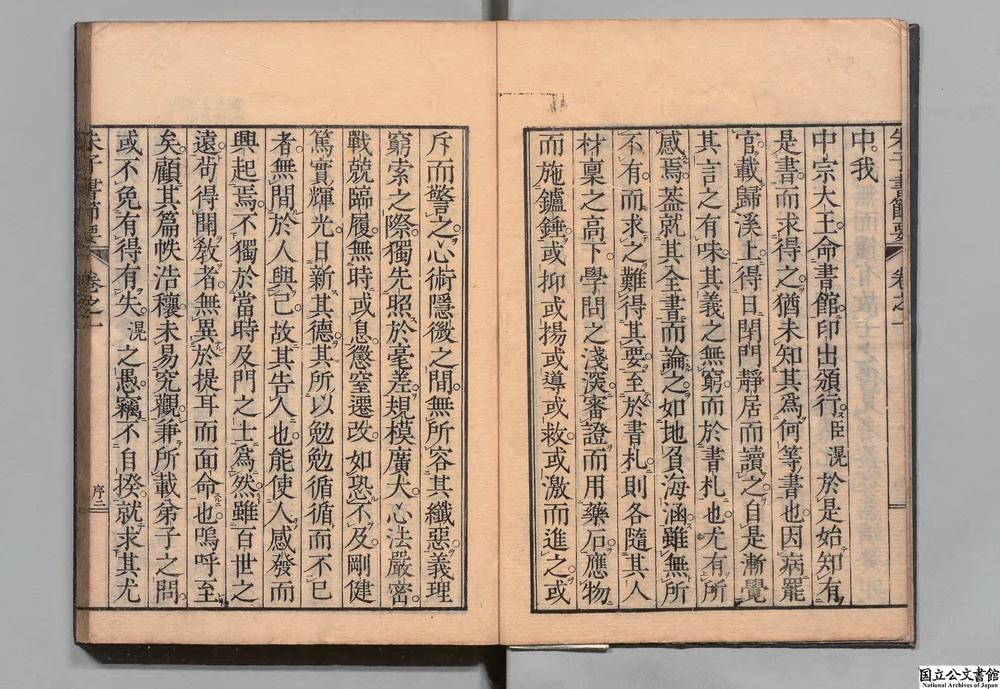 中我
中宗大王命書館印出頒行臣滉於是始知有
是書而求得之猶未知其爲何等書也因病罷
官載歸溪上得日閉門靜居而讀之自是漸覺
其言之有味其義之無窮而於書札也尤有所
感焉蓋就其全書而論之如地負海涵雖無所
不有而求之難得其要至於書札則各隨其人
材稟之高下學問之淺深審證而用藥石應物
而施鑪錘或抑或揚或導或救或激而進之或
斥而警之心術隱微之間無所容其纖惡義理
窮索之際獨先照於毫差規模廣大心法嚴密
戰兢臨履無時或息懲窒遷改如恐不及剛健
篤實輝光日新其德其所以勉勉循循而不已
者無間於人與己故其告人也能使人感發而
興起焉不獨於當時及門之士爲然雖百世之
遠苟得聞教者無異於提耳而面命也嗚呼至
矣顧其篇帙浩穰未易究觀兼所載弟子之問
或不免有得有失滉之愚竊不自揆就求其尤
朱子書節要 卷之一 序二
国立公文書館
National Archives of Japan